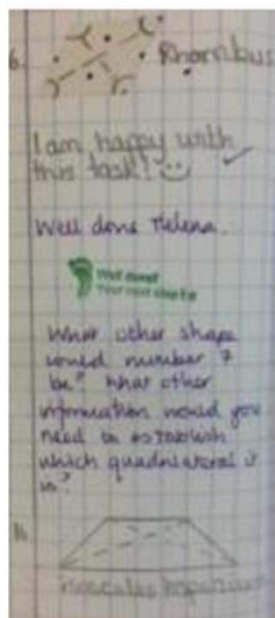 6. Rhombus
I am happy with
this task!
Well done Helena.
Well done!
Your next step is
What other shape
could number 7
be? What other
information would you
need to establish
which quadrilateral it
is?